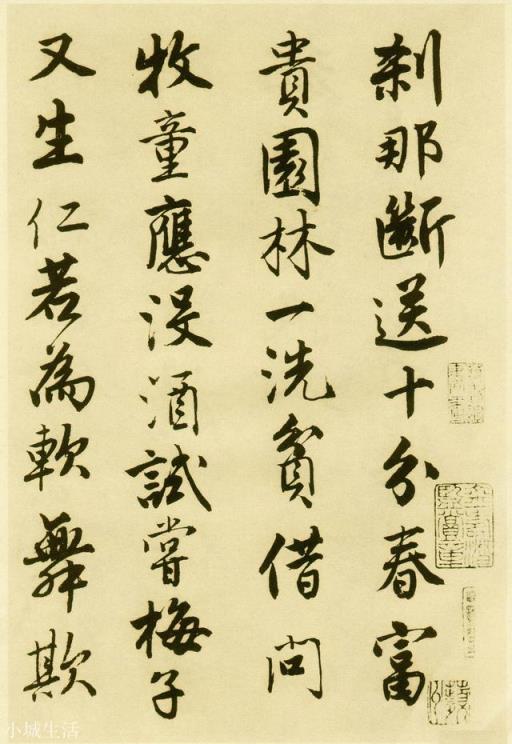 刹那斷送十分春富
貴園林一洗貧借問
牧童應沒酒試嘗梅子
又生仁若為軟舞欺
小城生活